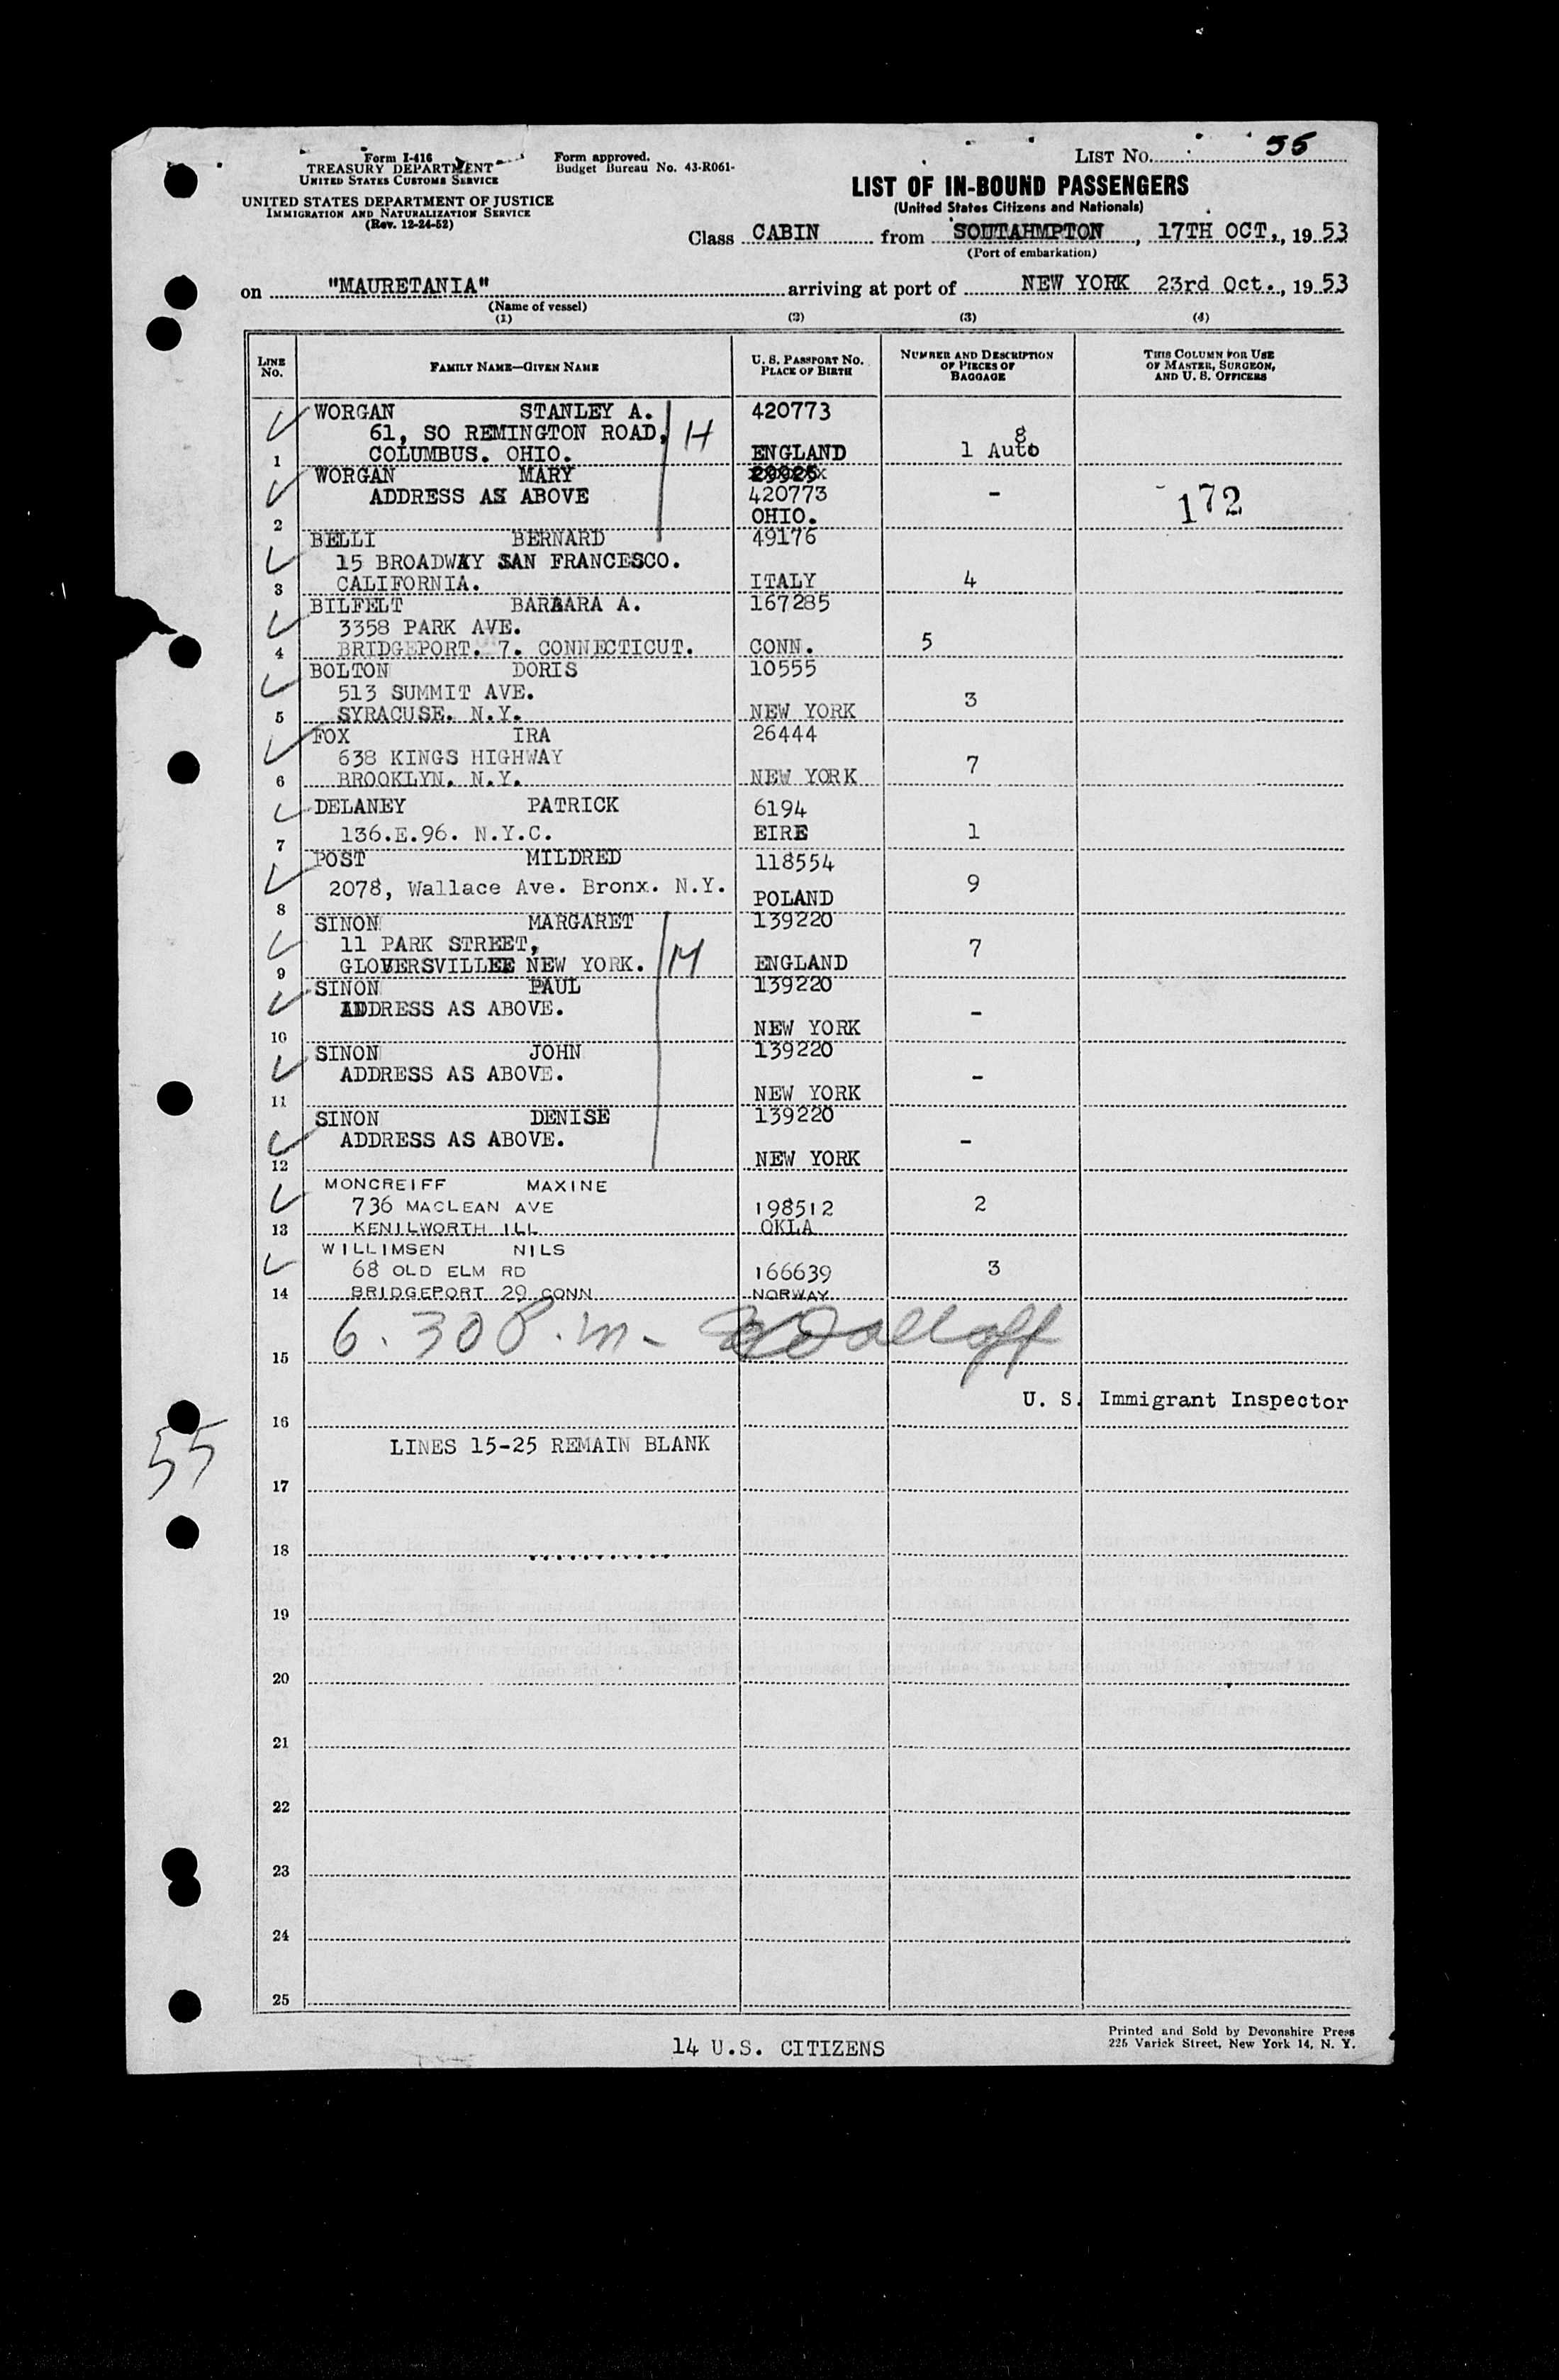 Form I-416
TREASURY DEPARTMENT
UNITED STATES CUSTOMS SERVICE
UNITED STATES DEPARTMENT OF JUSTICE
IMMIGRATION AND NATURALIZATION SERVICE
(Rev. 12-24-52)
Form approved.
Budget Bureau No. 43-R061-
LIST NO. 55
LIST OF IN-BOUND PASSENGERS
(United States Citizens and Nationals)
Class CABIN from SOUTAHMPTON, 17TH OCT., 1953
(Port of embarkation)
on "MAURETANIA" arriving at port of NEW YORK 23rd Oct., 1953
(Name of vessel)
(1) (2) (3) (4)
LINE NO. FAMILY NAME—GIVEN NAME U. S. PASSPORT NO. PLACE OF BIRTH NUMBER AND DESCRIPTION OF PIECES OF BAGGAGE THIS COLUMN FOR USE OF MASTER, SURGEON, AND U. S. OFFICERS
WORGAN STANLEY A. 420773
61, SO REMINGTON ROAD, H 8
1 COLUMBUS. OHIO. ENGLAND 1 Auto
WORGAN MARY 29925x
ADDRESS AS ABOVE 420773 - 172
2 OHIO.
BELLI BERNARD 49176
15 BROADWAY SAN FRANCESCO.
3 CALIFORNIA. ITALY 4
BILFELT BARBARA A. 167285
3358 PARK AVE.
4 BRIDGEPORT. 7. CONNECTICUT. CONN. 5
BOLTON DORIS 10555
513 SUMMIT AVE. 3
5 SYRACUSE. N.Y. NEW YORK
FOX IRA 26444
638 KINGS HIGHWAY 7
6 BROOKLYN. N.Y. NEW YORK
DELANEY PATRICK 6194
7 136.E.96. N.Y.C. EIRE 1
POST MILDRED 118554
2078, Wallace Ave. Bronx. N.Y. 9
8 POLAND
SINON MARGARET 139220
11 PARK STREET, 7
9 GLOVERSVILLE NEW YORK. M ENGLAND
SINON PAUL 139220
ADDRESS AS ABOVE. -
10 NEW YORK
SINON JOHN 139220
ADDRESS AS ABOVE. -
11 NEW YORK
SINON DENISE 139220
ADDRESS AS ABOVE. -
12 NEW YORK
MONCREIFF MAXINE
736 MACLEAN AVE 198512 2
13 KENILWORTH ILL OKLA
WILLIMSEN NILS
68 OLD ELM RD 166639 3
14 BRIDGEPORT 29 CONN NORWAY
6.30 P.m-
15
U. S. Immigrant Inspector
16
55
LINES 15-25 REMAIN BLANK
17
18
19
20
21
22
23
24
25
14 U.S. CITIZENS
Printed and Sold by Devonshire Press
225 Varick Street, New York 14, N. Y.